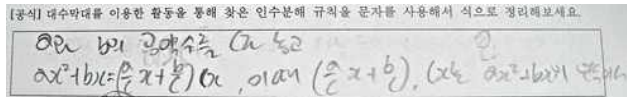 [공식] 대수막대를 이용한 활동을 통해 찾은 인수분해 규칙을 문자를 사용해서 식으로 정리해보세요.
a와 b의 공약수를 C라 놓고
ax²+bx=(a/c x+b/c)cx, 이때 (a/c x+b/c), cx는 ax²+bx의